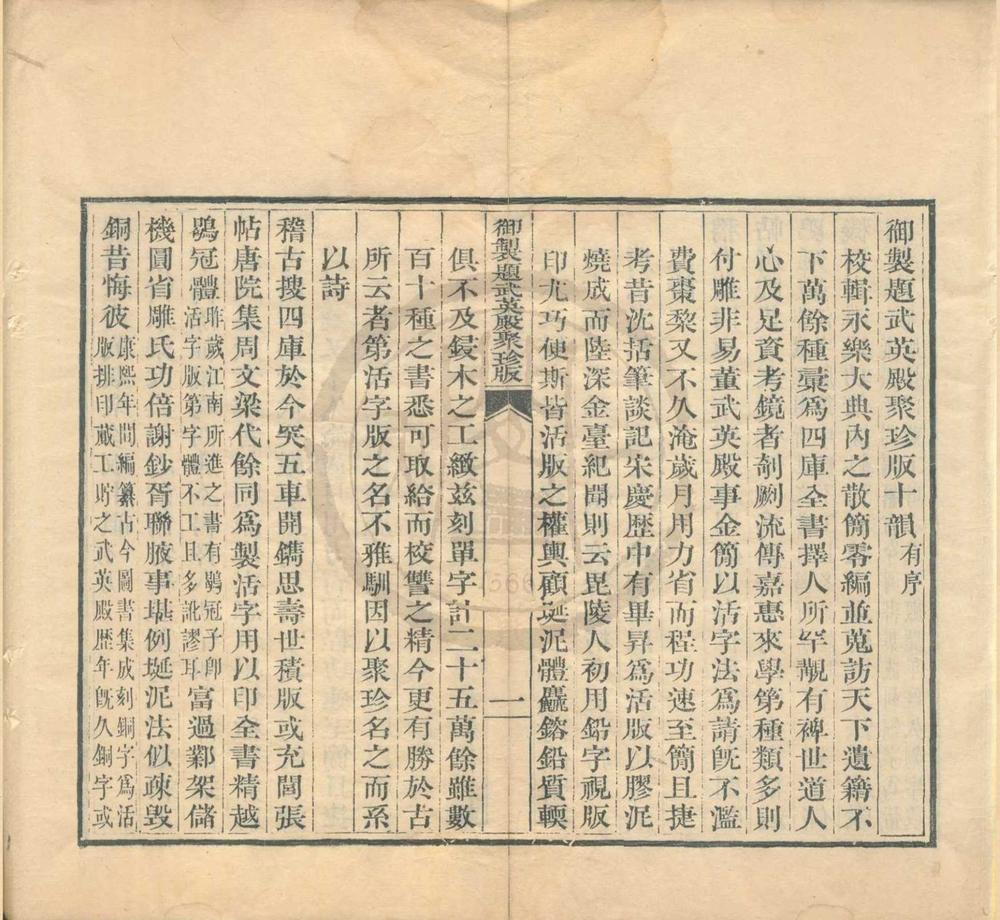 御製題武英殿聚珍版十韻有序
校輯永樂大典內之散簡零編並蒐訪天下遺籍不
下萬餘種彚爲四庫全書擇人所罕覯有裨世道人
心及足資考鏡者剞劂流傳嘉惠來學第種類多則
付雕非易董武英殿事金簡以活字法爲請旣不濫
費棗棃又不久淹歲月用力省而程功速至簡且捷
考昔沈括筆談記宋慶歷中有畢昇爲活版以膠泥
燒成而陸深金臺紀聞則云毘陵人初用鉛字視版
印尤巧便斯皆活版之權輿顧埏泥體麤鎔鉛質輭
御製題武英殿聚珍版
一
俱不及鋟木之工緻茲刻單字計二十五萬餘雖數
百十種之書悉可取給而校讐之精今更有勝於古
所云者第活字版之名不雅馴因以聚珍名之而系
以詩
稽古搜四庫於今突五車開鐫思壽世積版或充閭張
帖唐院集周文梁代餘同爲製活字用以印全書精越
鶡冠體昨歲江南所進之書有鶡冠子卽活字版第字體不工且多訛謬耳富過鄴架儲
機圓省雕氏功倍謝鈔胥聯腋事堪例埏泥法似疎毁
銅昔悔彼康熙年間編纂古今圖書集成刻銅字爲活版排印蕆工貯之武英殿歷年旣久銅字或